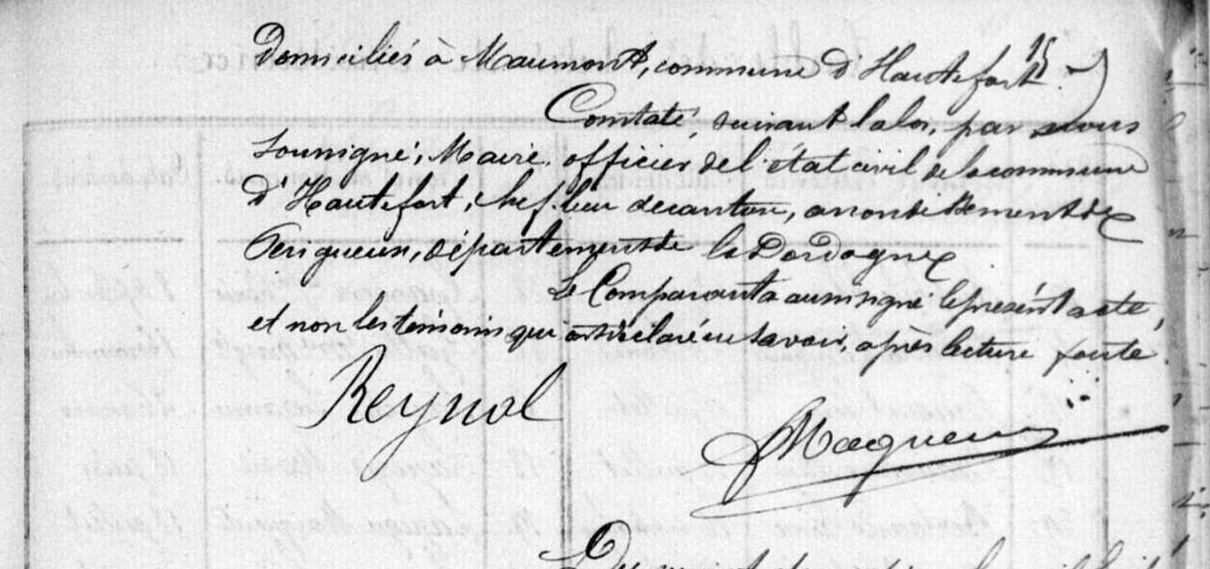 Domiciliés à Maumont, commune d'Hautefort.
Constaté, suivant la loi, par nous
soussigné, Maire, officier de l'état civil de la commune
d'Hautefort, chef-lieu de canton, arrondissement de
Périgueux, département de la Dordogne
Le Comparant a aussi signé le présent acte,
et non les témoins qui ont déclaré ne savoir, après lecture faite.
Reynol